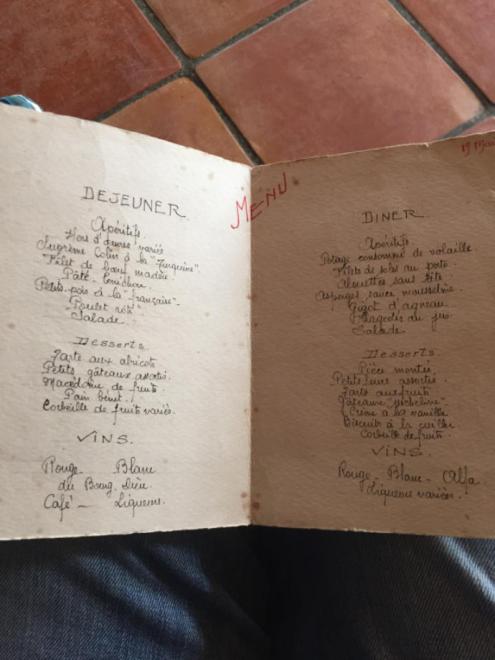 MENU
DEJEUNER
Apéritifs
Hors d'œuvres variés
Suprême Colin à la "Zingurine"
Filet de bœuf madère
Pâté Cornichon
Petits pois à la "française"
Poulet rôti
Salade
Desserts
Tarte aux abricots
Petits gâteaux assortis
Macédoine de fruits
Pain bénit
Corbeille de fruits variés.
VINS.
Rouge - Blanc
du Bourg. Dieu
Café - Liqueurs.
19 Mars
DINER
Apéritifs
Potage consommé de volaille
Filets de soles au porto
Alouettes sans tête
Asperges sauce mousseline
Gigot d'agneau
Flageolets au jus
Salade
Desserts
Pièce montée
Petits fours assortis
Tarte aux fruits
Gâteaux
Crème à la vanille
Biscuits à la cuiller
Corbeille de fruits.
VINS.
Rouge - Blanc -
Liqueurs variées.